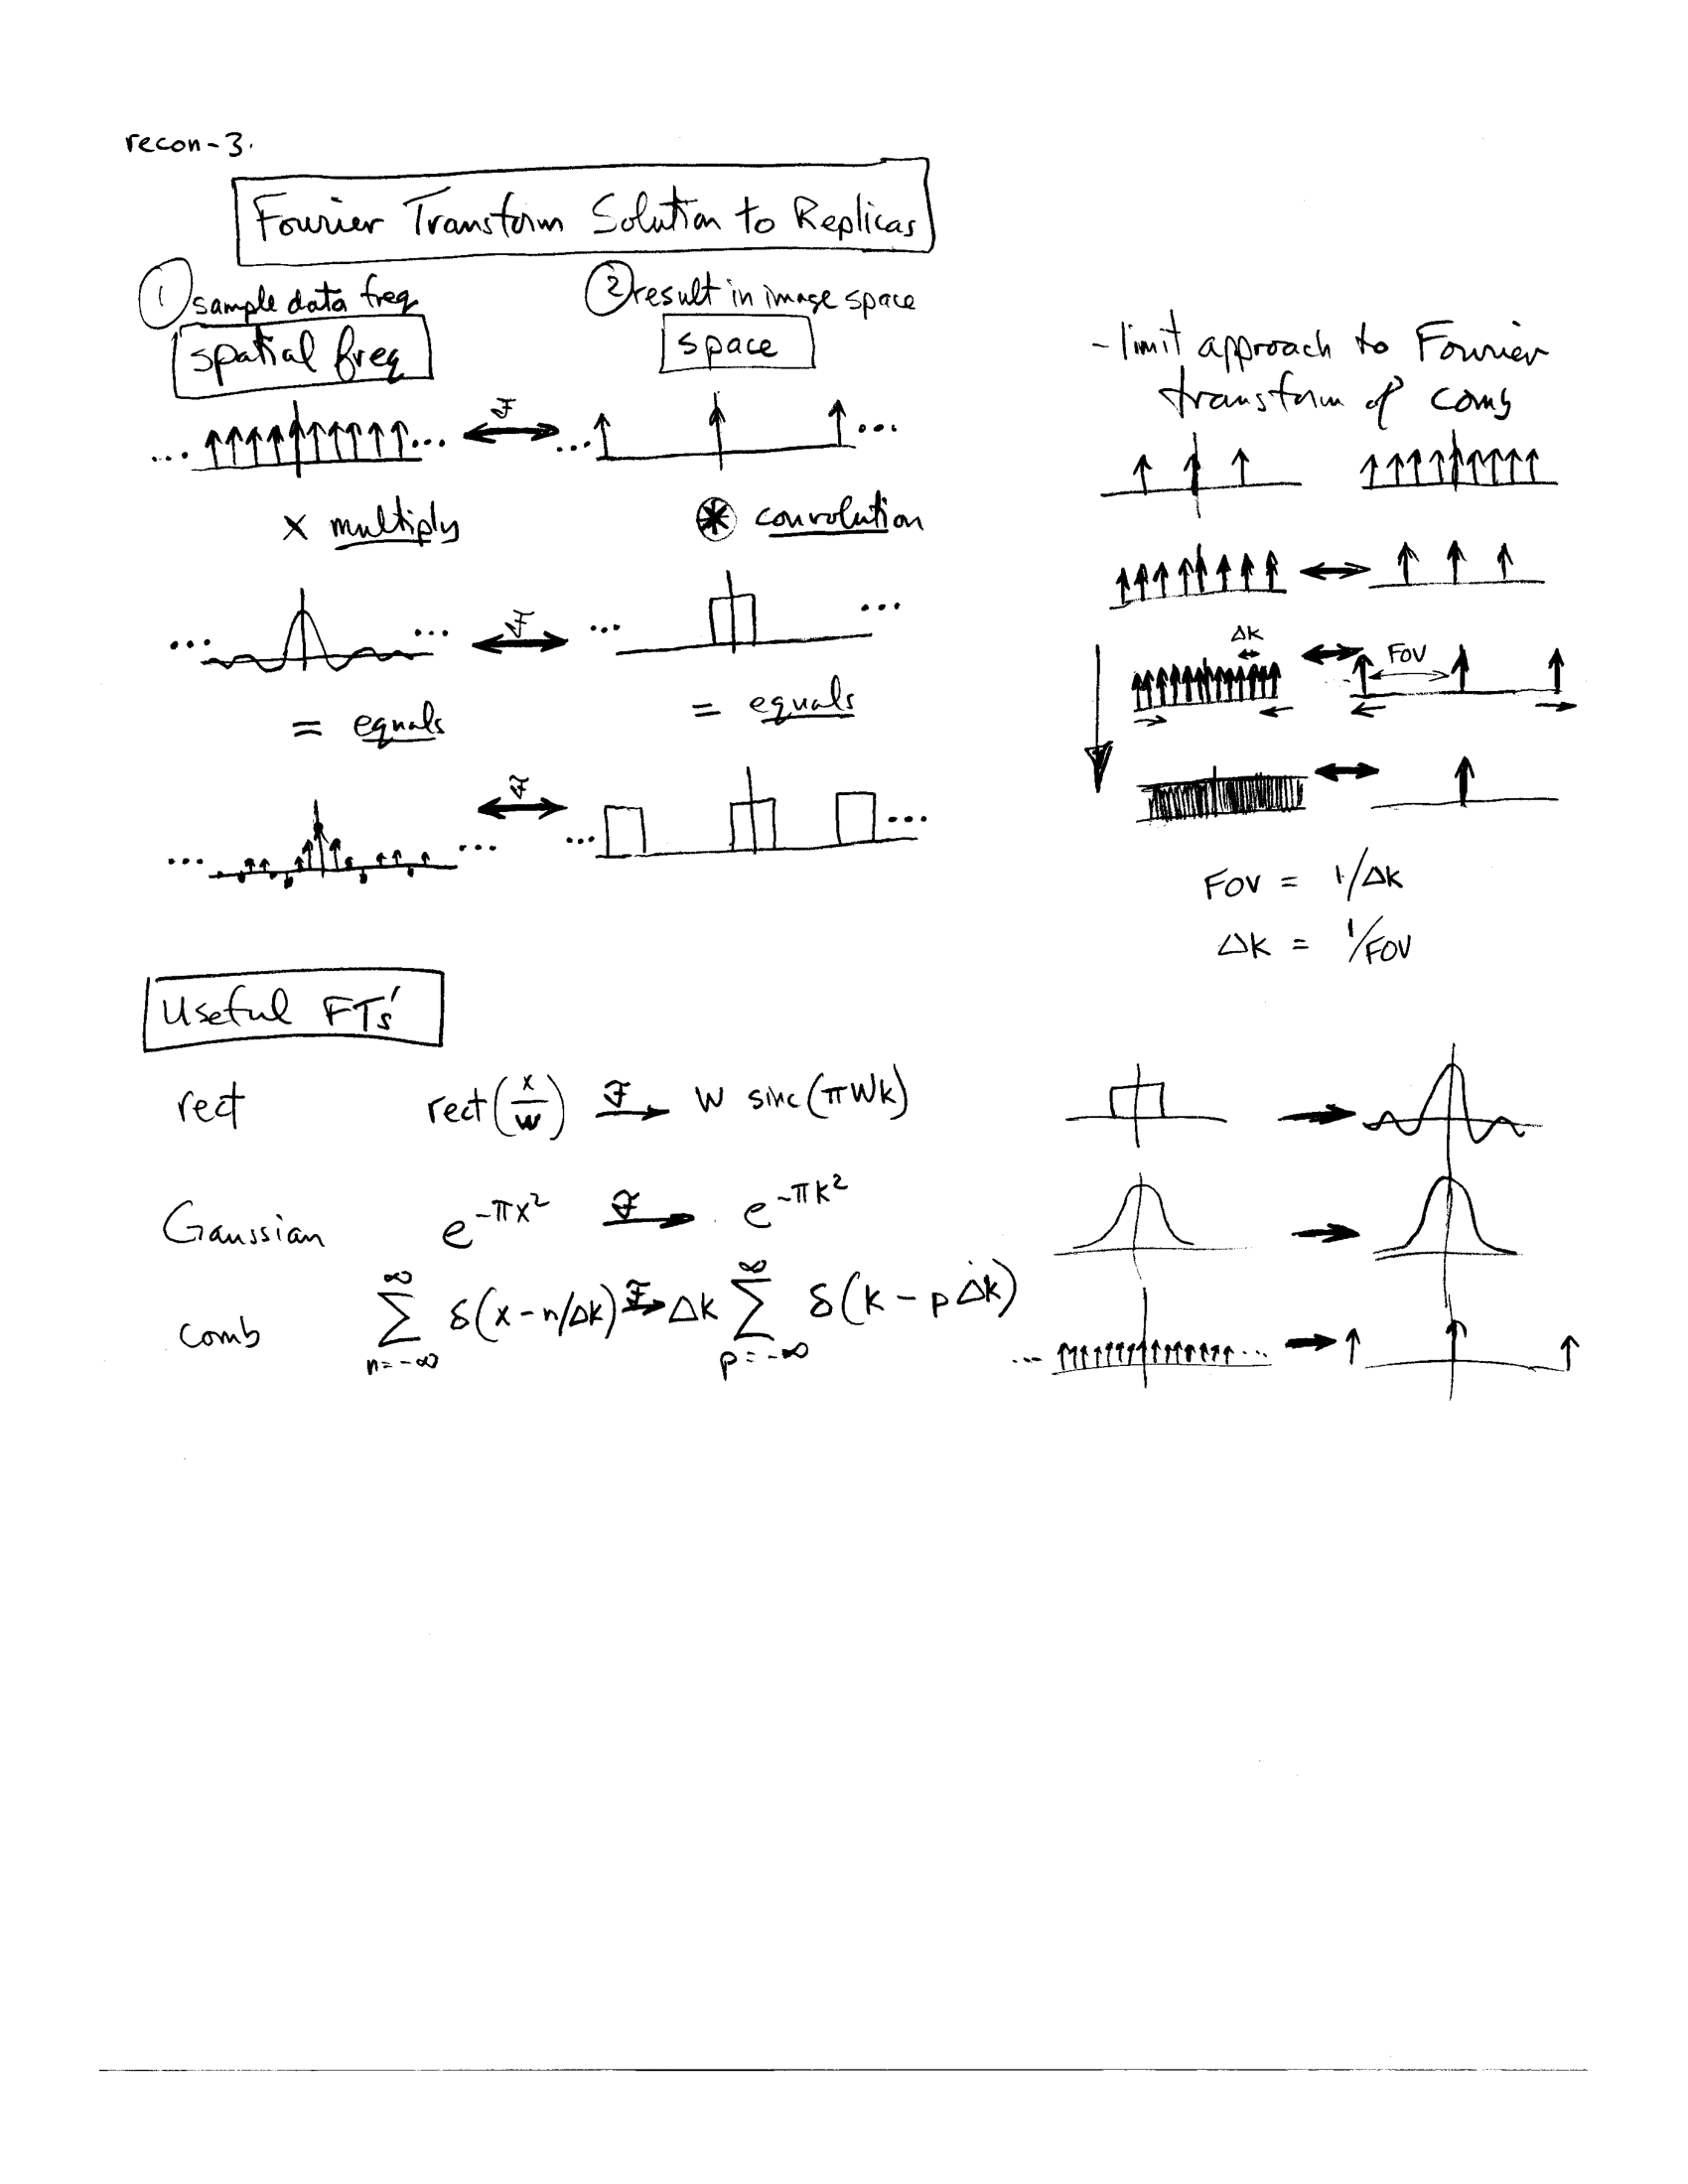 recon-3.
Fourier Transform Solution to Replicas
① sample data freq
spatial freq
② result in image space
space
... ... ℱ ... ...
× multiply
⊛ convolution
... ... ℱ ... ...
= equals
= equals
... ... ℱ ... ...
- limit approach to Fourier
transform of comb
Δk
FOV
FOV = 1/Δk
Δk = 1/FOV
Useful FTs'
rect rect(x/w) ℱ→ W sinc(πWk)
Gaussian e^{-πx²} ℱ→ e^{-πk²}
comb ∑_{n=-∞}^{∞} δ(x - n/Δk) ℱ→ Δk ∑_{p=-∞}^{∞} δ(k - pΔk)
... ...